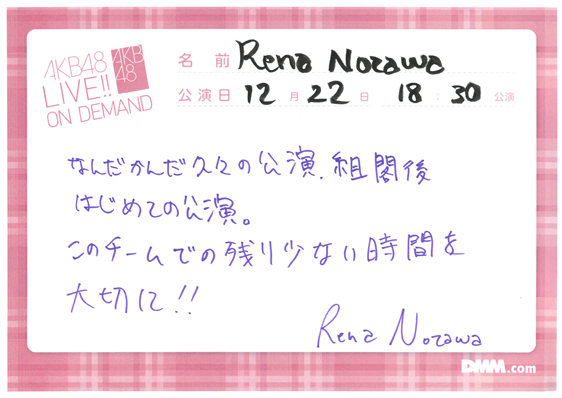 AKB48
LIVE!!
ON DEMAND
AKB
48
名前 Rena Nozawa
公演日 12月22日 18:30公演
なんだかんだ久々の公演、組閣後
はじめての公演。
このチームでの残り少ない時間を
大切に!!
Rena Nozawa
DMM.com